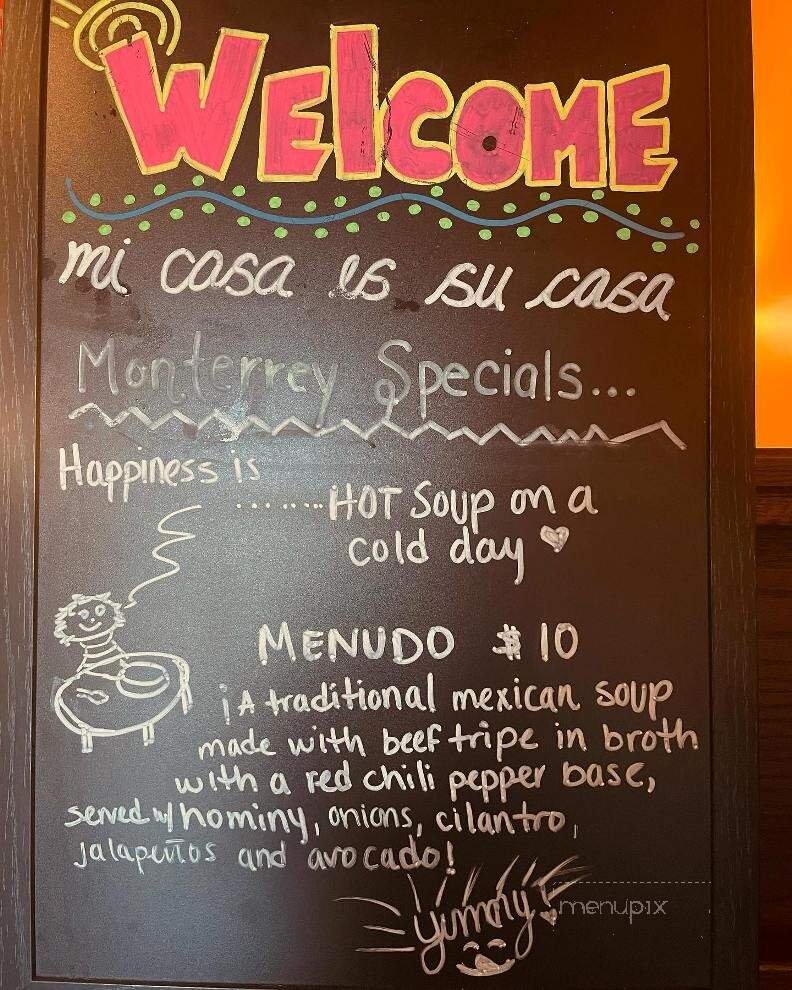 WElCOME
mi casa es su casa
Monterrey Specials...
Happiness is
........HOT Soup on a
cold day
MENUDO $10
¡A traditional mexican soup
made with beef tripe in broth
with a red chili pepper base,
served w/ hominy, onions, cilantro,
Jalapeños and avocado!
yummy!
menupix